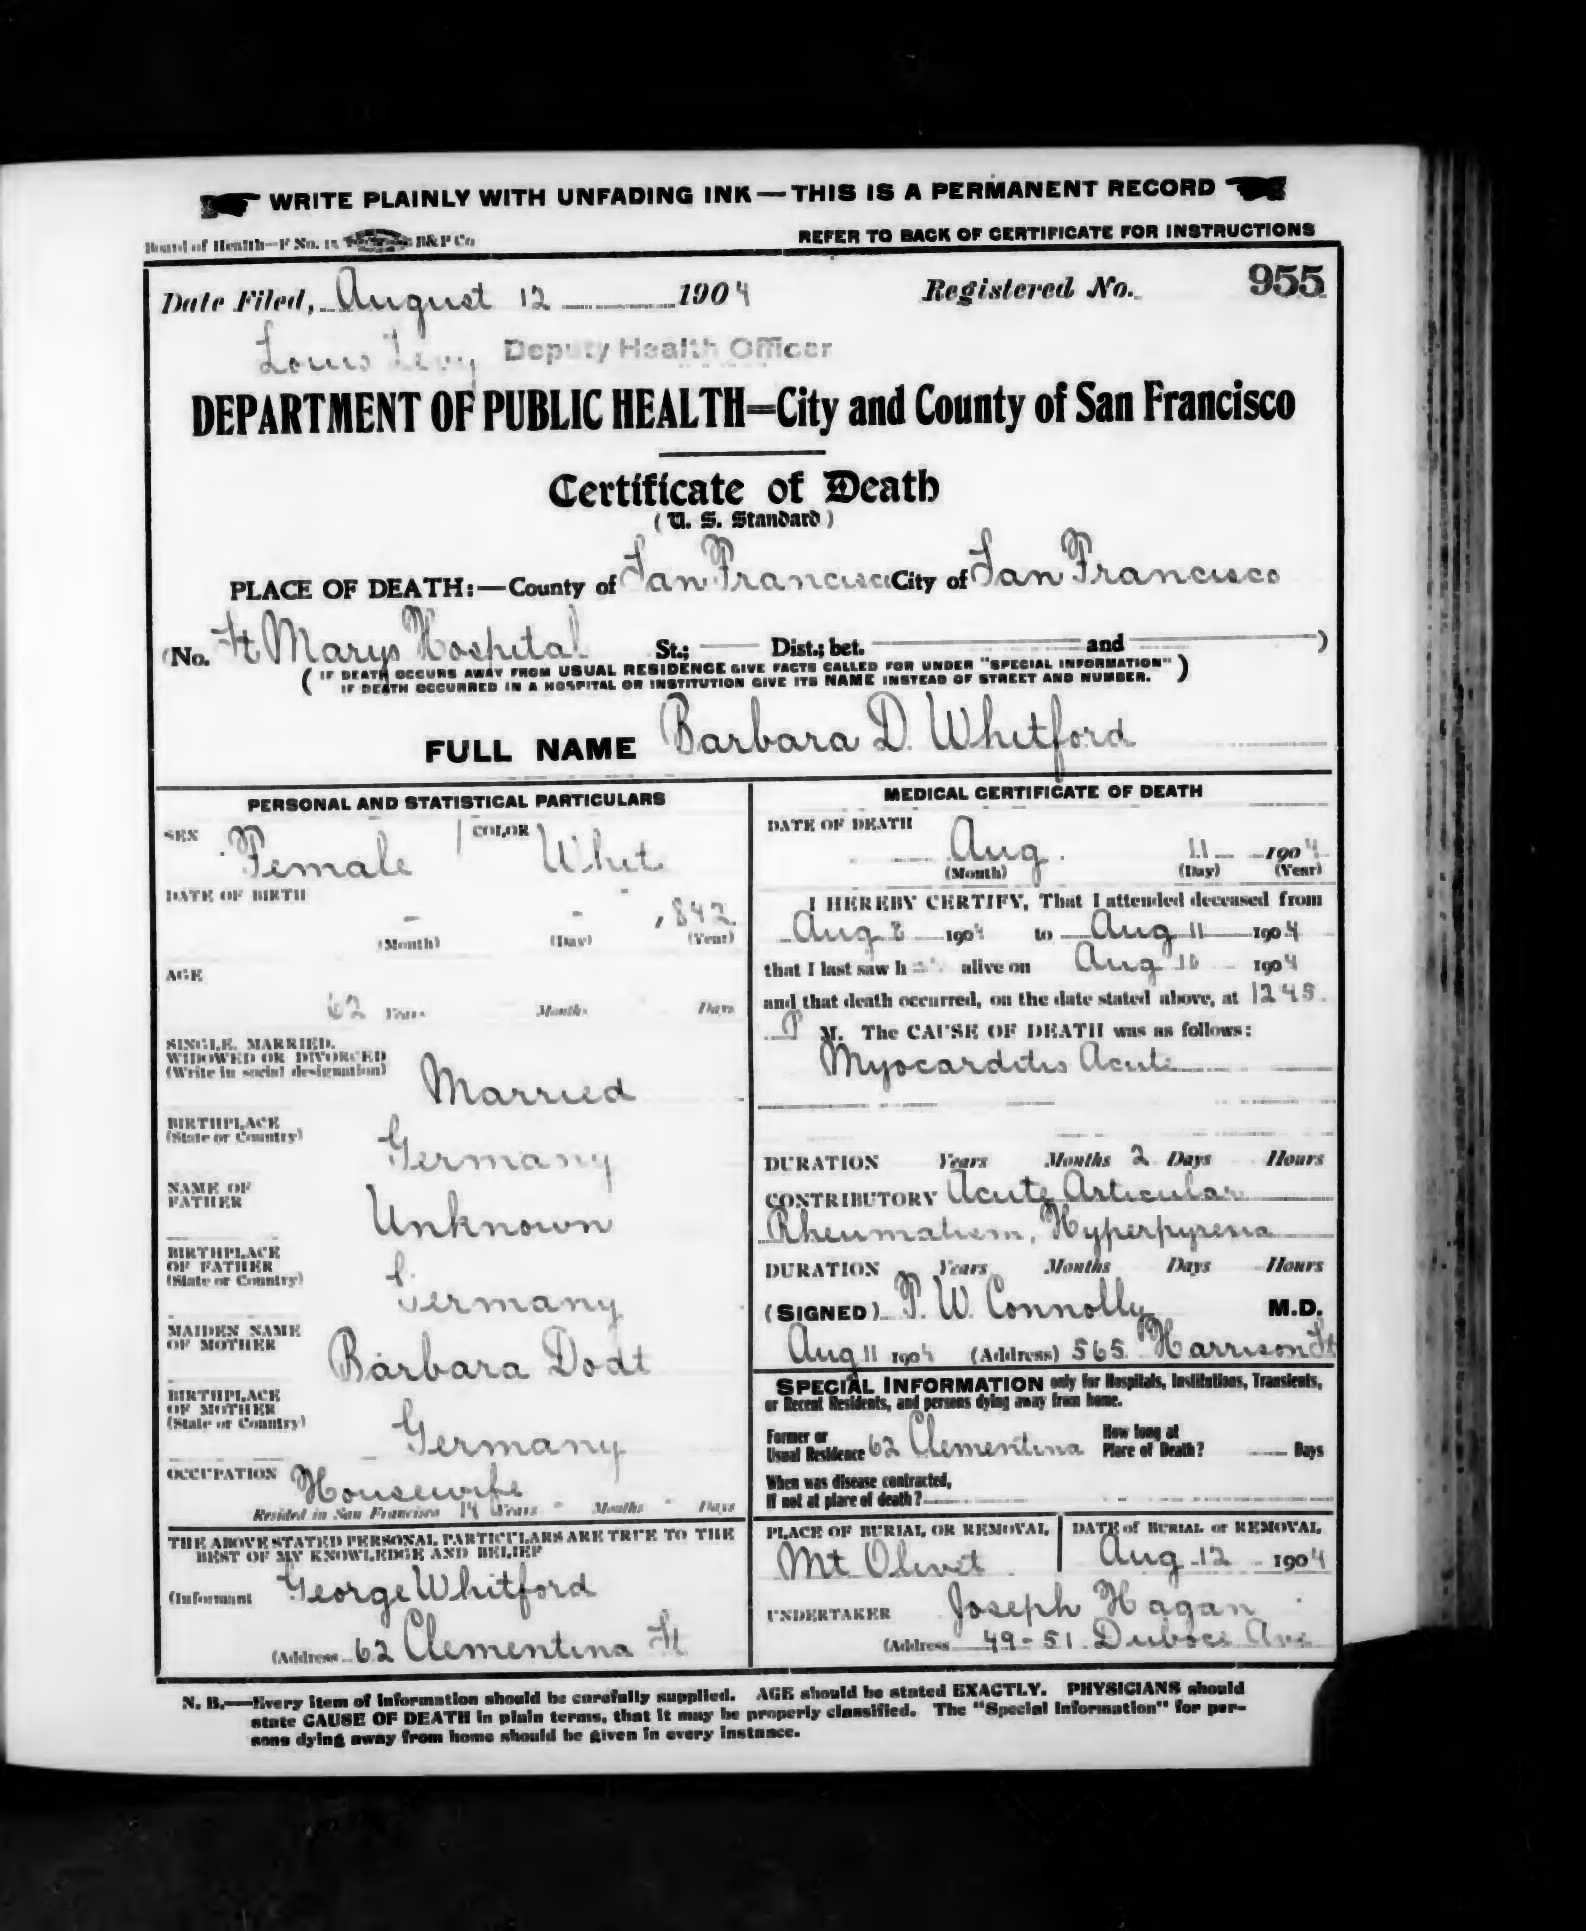 WRITE PLAINLY WITH UNFADING INK — THIS IS A PERMANENT RECORD
Board of Health—F No. 15 B&P Co
REFER TO BACK OF CERTIFICATE FOR INSTRUCTIONS
Date Filed, August 12 1904 Registered No. 955
Louis Levy Deputy Health Officer
DEPARTMENT OF PUBLIC HEALTH=City and County of San Francisco
Certificate of Death
(U. S. Standard)
PLACE OF DEATH:—County of San Francisco City of San Francisco
(No. St Marys Hospital St.; Dist.; bet. and )
( IF DEATH OCCURS AWAY FROM USUAL RESIDENCE GIVE FACTS CALLED FOR UNDER "SPECIAL INFORMATION" )
IF DEATH OCCURRED IN A HOSPITAL OR INSTITUTION GIVE ITS NAME INSTEAD OF STREET AND NUMBER.
FULL NAME Barbara D. Whitford
PERSONAL AND STATISTICAL PARTICULARS
SEX Female COLOR Whit
DATE OF BIRTH
- - 1842
(Month) (Day) (Year)
AGE
62 Years Months Days
SINGLE, MARRIED,
WIDOWED OR DIVORCED
(Write in social designation) Married
BIRTHPLACE
(State or Country) Germany
NAME OF
FATHER Unknown
BIRTHPLACE
OF FATHER
(State or Country) Germany
MAIDEN NAME
OF MOTHER Barbara Dodt
BIRTHPLACE
OF MOTHER
(State or Country) Germany
OCCUPATION Housewife
Resided in San Francisco 14 Years - Months - Days
THE ABOVE STATED PERSONAL PARTICULARS ARE TRUE TO THE
BEST OF MY KNOWLEDGE AND BELIEF
(Informant George Whitford
(Address 62 Clementina St
MEDICAL CERTIFICATE OF DEATH
DATE OF DEATH
Aug 11 1904
(Month) (Day) (Year)
I HEREBY CERTIFY, That I attended deceased from
Aug 8 1904 to Aug 11 1904
that I last saw h alive on Aug 10 1904
and that death occurred, on the date stated above, at 1245
P M. The CAUSE OF DEATH was as follows:
Myocarditis Acute
DURATION Years Months 2 Days Hours
CONTRIBUTORY Acute Articular
Rheumatism, Hyperpyrexia
DURATION Years Months Days Hours
(SIGNED) P. W. Connolly M.D.
Aug 11 1904 (Address) 565 Harrison St
SPECIAL INFORMATION only for Hospitals, Institutions, Transients,
or Recent Residents, and persons dying away from home.
Former or
Usual Residence 62 Clementina
How long at
Place of Death? Days
When was disease contracted,
If not at place of death?
PLACE OF BURIAL OR REMOVAL
Mt Olivet
DATE of BURIAL or REMOVAL
Aug 12 1904
UNDERTAKER Joseph Hagan
(Address 49-51 Duboce Ave
N. B.—Every item of information should be carefully supplied. AGE should be stated EXACTLY. PHYSICIANS should
state CAUSE OF DEATH in plain terms, that it may be properly classified. The "Special Information" for per-
sons dying away from home should be given in every instance.